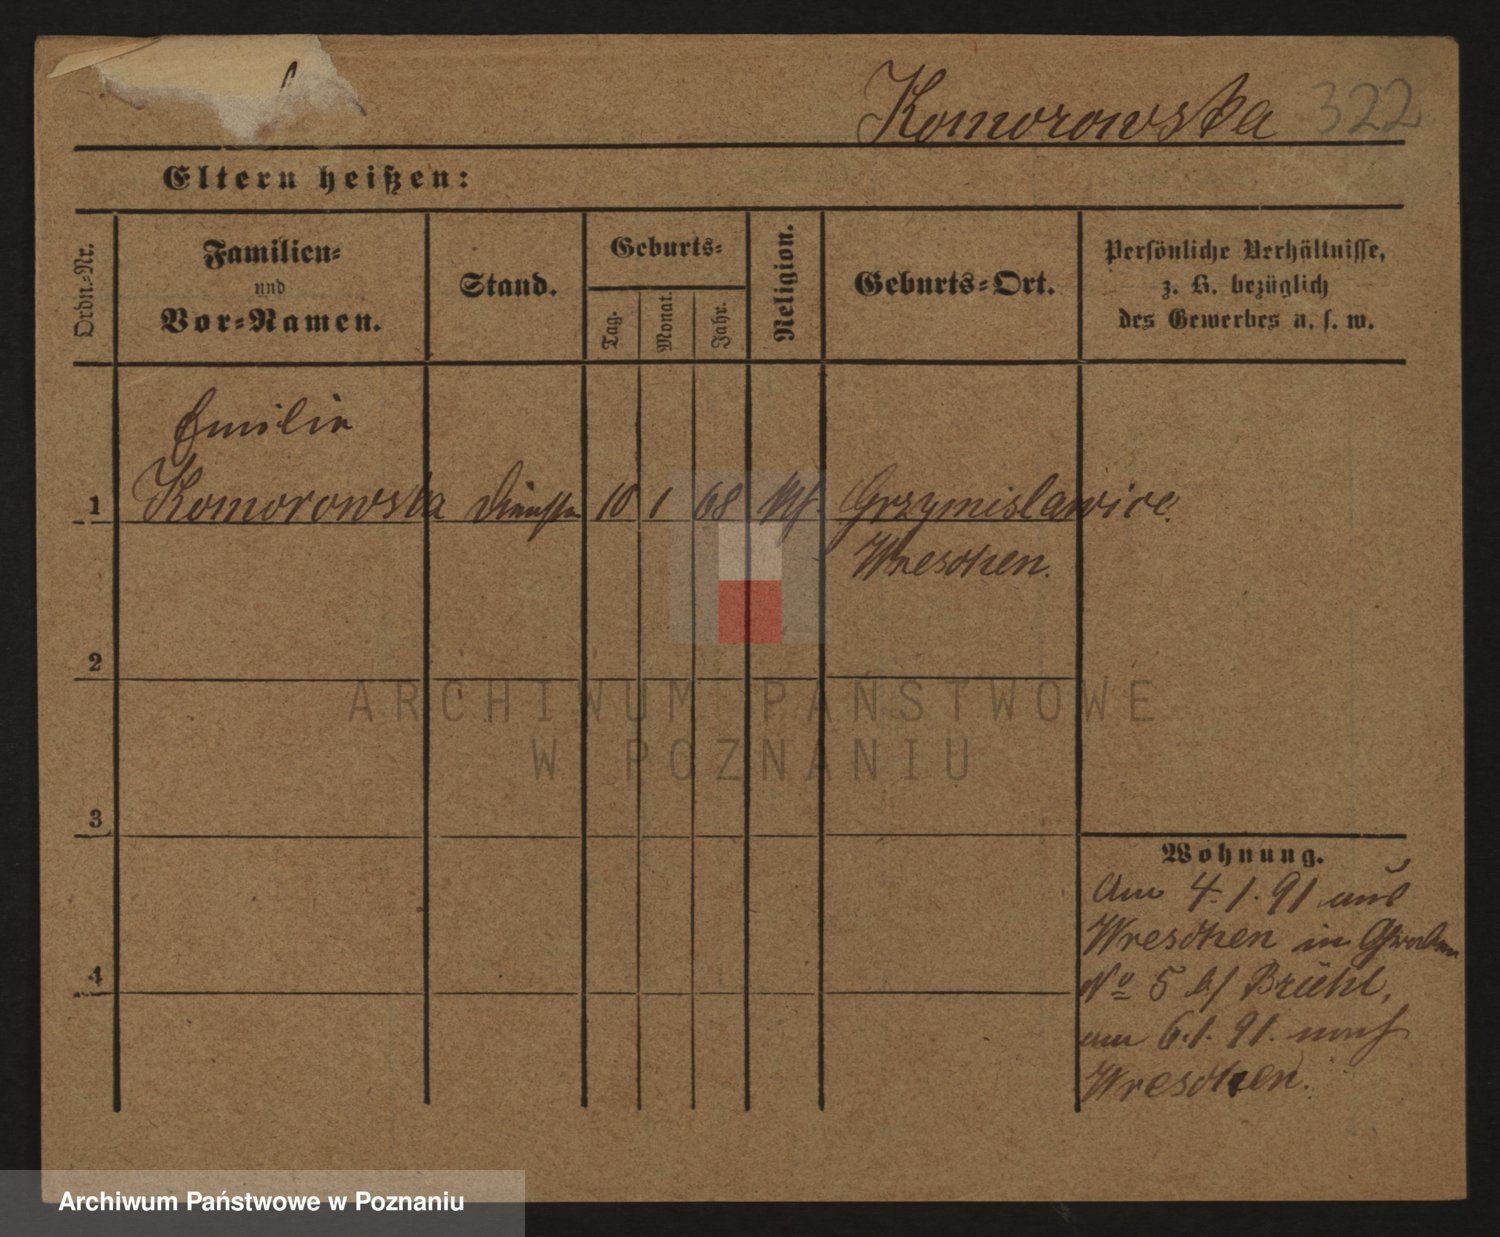 Komorowska 322
Eltern heißen:
Ordn.-Nr.
Familien-
und
Vor-Namen.
Stand.
Geburts-
Tag.
Monat.
Jahr.
Religion.
Geburts-Ort.
Persönliche Verhältnisse,
z. B. bezüglich
des Gewerbes u. s. w.
Emilie
1 Komorowska 10 1 68 Grzymislawice
Wreschen.
2
3
4
Wohnung.
Am 4.1.91 aus
Wreschen in
No 5 b/ Brühl,
am 6.1.91. nach
Wreschen.
ARCHIWUM PAŃSTWOWE
W POZNANIU
Archiwum Państwowe w Poznaniu